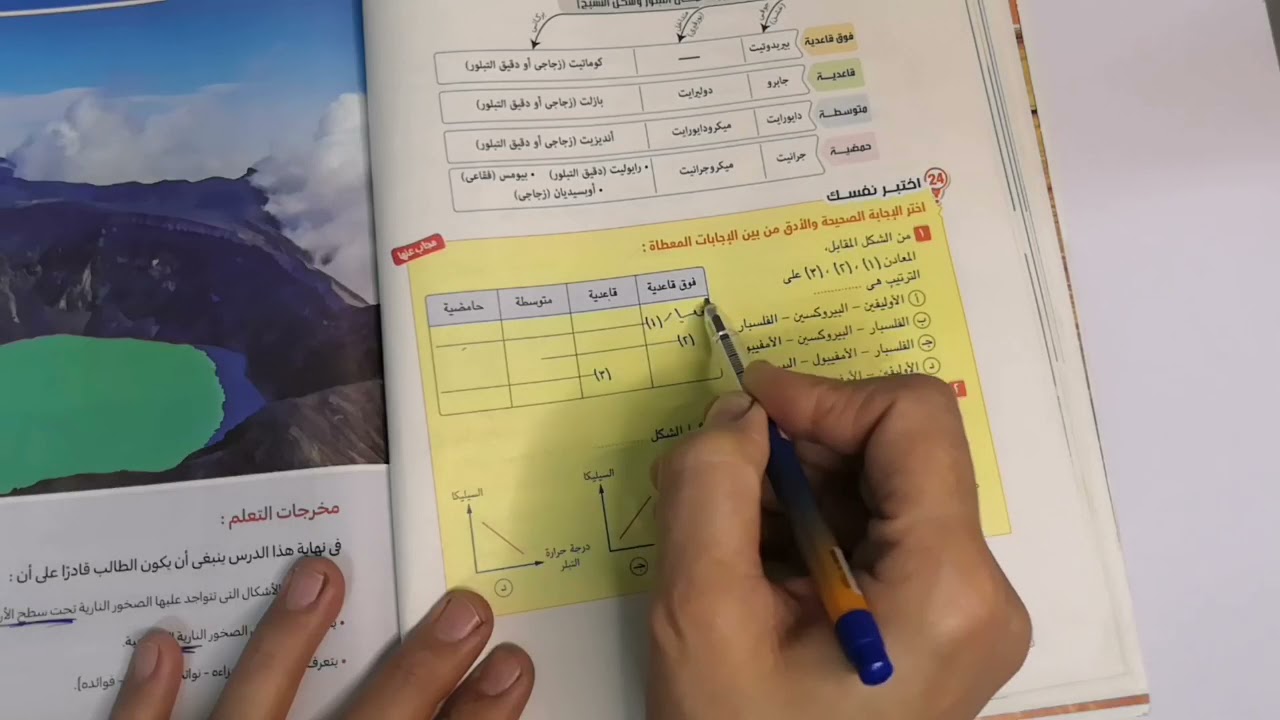 بركانى
متداخل
جوفى
فوق قاعدية
بيريدوتيت
—
كوماتيت (زجاجى أو دقيق التبلور)
قاعدية
جابرو
دوليرايت
بازلت (زجاجى أو دقيق التبلور)
متوسطة
دايورايت
ميكرودايورايت
أنديزيت (زجاجى أو دقيق التبلور)
حمضية
جرانيت
ميكروجرانيت
• رايوليت (دقيق التبلور) • بيومس (فقاعى)
• أوبسيديان (زجاجى)
24 اختبر نفسك
مجاب عنها
اختر الإجابة الصحيحة والأدق من بين الإجابات المعطاة :
١ من الشكل المقابل،
المعادن (١) ، (٢) ، (٣) على
الترتيب هى ............
أ الأوليفين – البيروكسين – الفلسبار
ب الفلسبار – البيروكسين – الأمفيبو
ج الفلسبار – الأمفيبول –
د الأوليفين –
فوق قاعدية
قاعدية
متوسطة
حامضية
(١)
(٢)
(٣)
٢
الشكل ............
السيليكا
ج
السيليكا
درجة حرارة
التبلر
د
مخرجات التعلم :
فى نهاية هذا الدرس ينبغى أن يكون الطالب قادرًا على أن :
الأشكال التى تتواجد عليها الصخور النارية تحت سطح
الصخور النارية
• يتعرف
– فوائده].